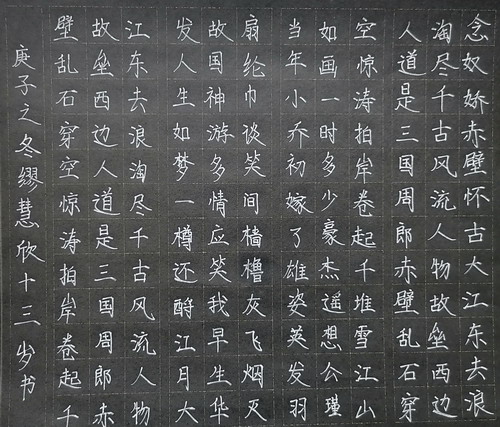 念奴娇赤壁怀古大江东去浪
淘尽千古风流人物故垒西边
人道是三国周郎赤壁乱石穿
空惊涛拍岸卷起千堆雪江山
如画一时多少豪杰遥想公瑾
当年小乔初嫁了雄姿英发羽
扇纶巾谈笑间樯橹灰飞烟灭
故国神游多情应笑我早生华
发人生如梦一樽还酹江月大
江东去浪淘尽千古风流人物
故垒西边人道是三国周郎赤
壁乱石穿空惊涛拍岸卷起千
庚子之冬缪慧欣十三岁书